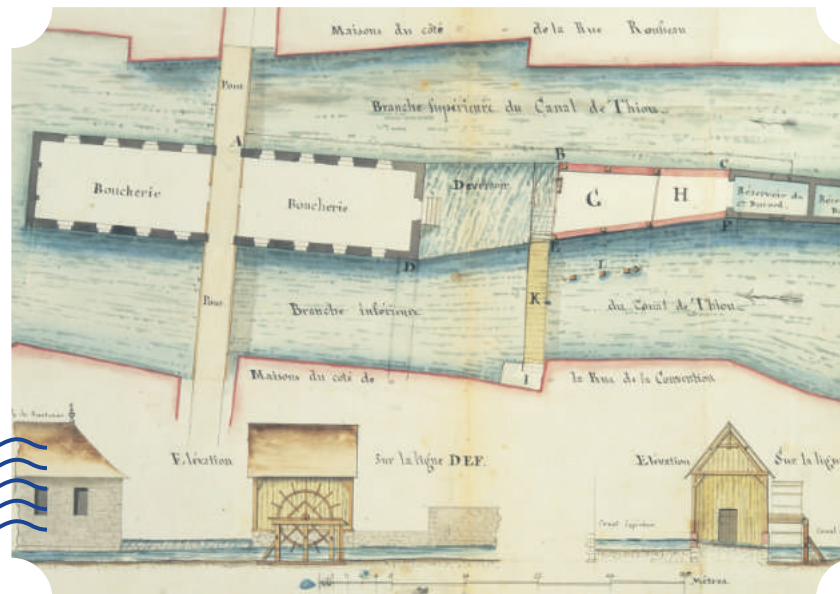 Maisons du côté de la Rue Rousseau
Pont
Branche Supérieure du Canal de Thiou
A
B
C
Boucherie
Boucherie
Déversoir
G
H
Réservoir du
Cn Burnod
D
E
F
L
Pont
Branche inférieure
K
du Canal de Thiou
I
Maisons du côté de la Rue de la Convention
Elévation Sur la ligne DEF.
Elévation Sur la ligne
Canal Supérieur
Canal
Mètres